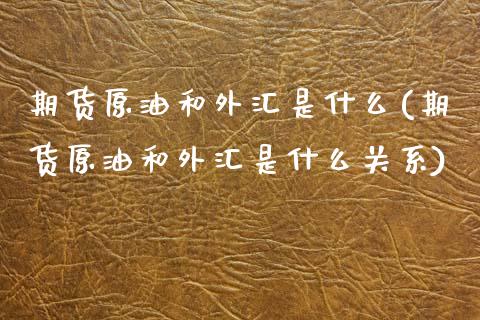 期货原油和外汇是什么(期
货原油和外汇是什么关系)